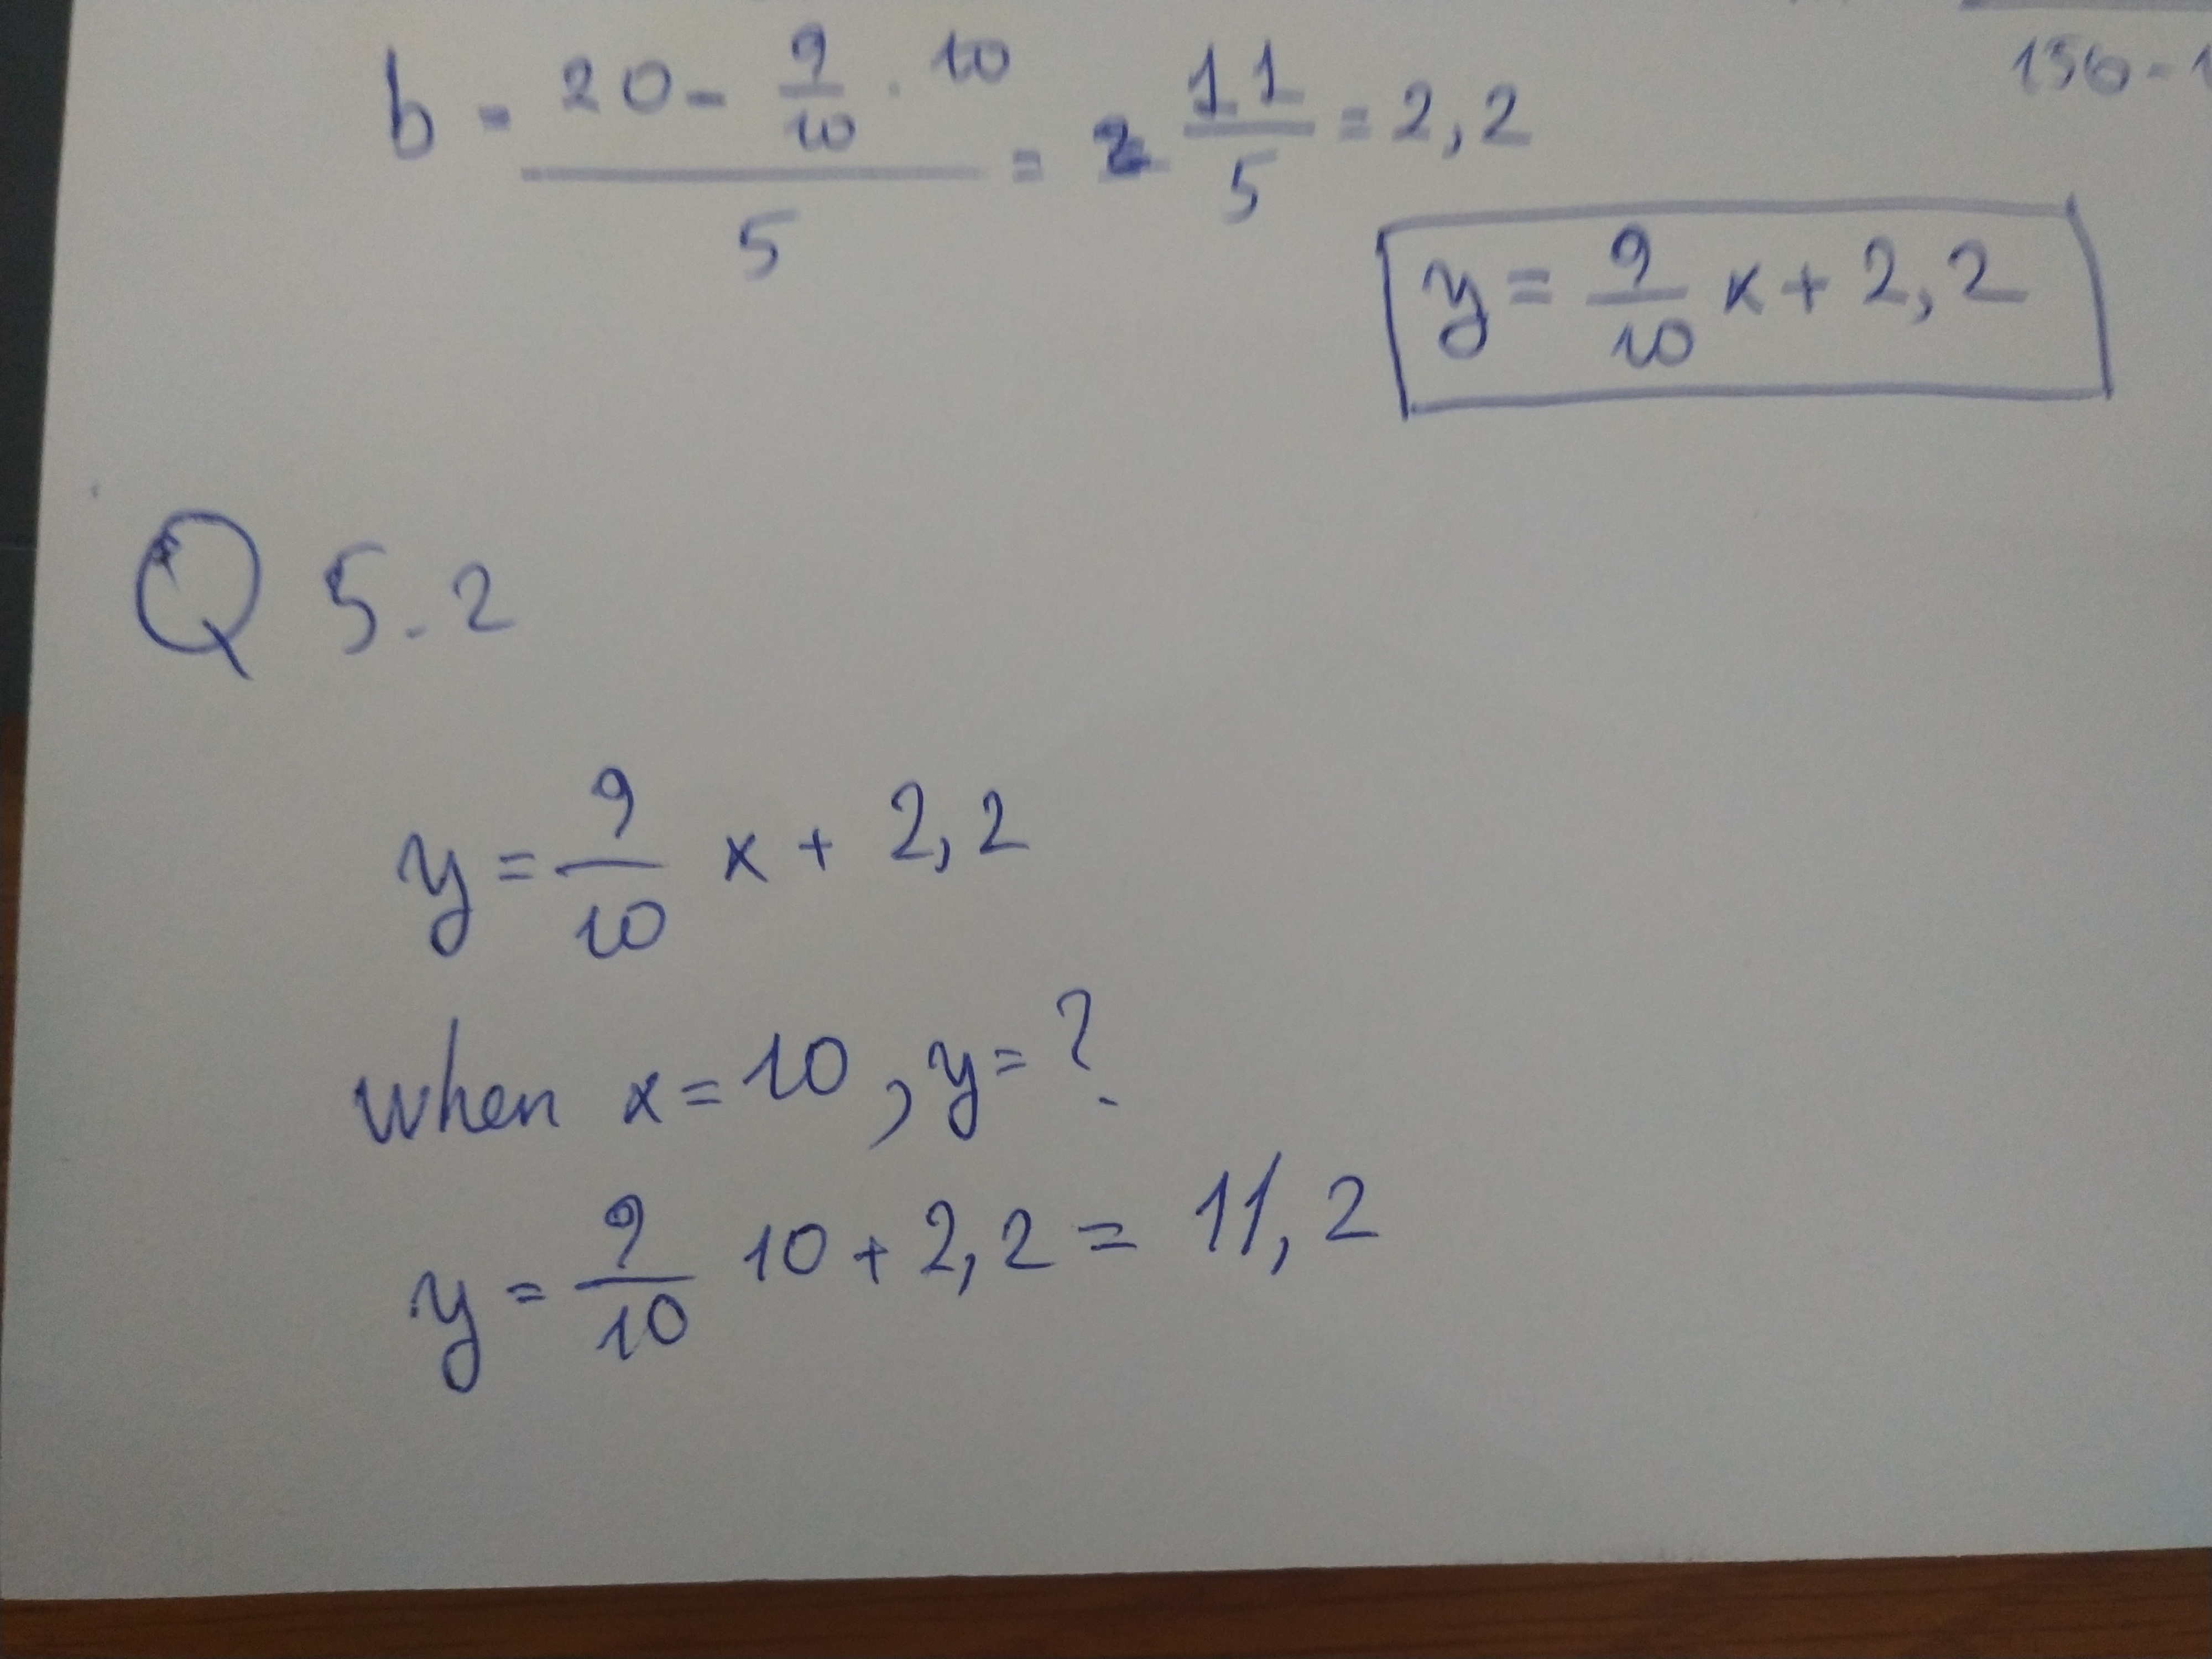 150-1
b = (20 - 9/10 · 10)/5 = 11/5 = 2,2
y = 9/10 x + 2,2
Q 5.2
y = 9/10 x + 2,2
when x = 10, y = ?
y = 9/10 10 + 2,2 = 11,2